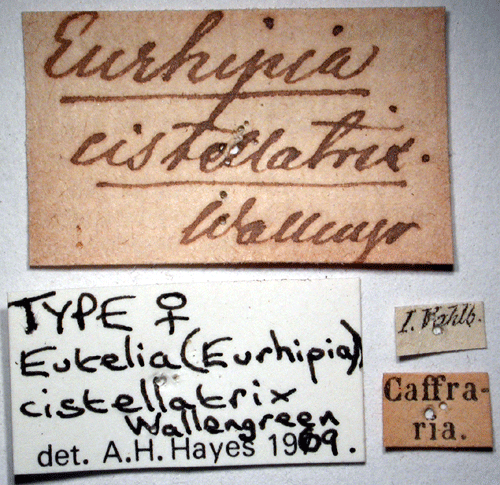 Eurhipia
cistellatrix.
Wallengr
TYPE ♀
Eutelia (Eurhipia)
cistellatrix
Wallengreen
det. A.H. Hayes 1969.
I. Wahlb.
Caffra-
ria.